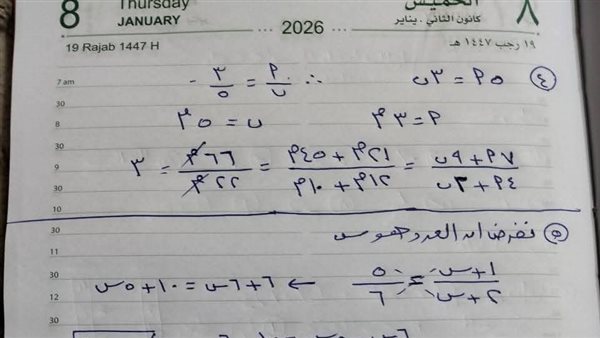 8 Thursday الخميس ٨
JANUARY 2026 كانون الثاني . يناير
19 Rajab 1447 H ١٩ رجب ١٤٤٧ هـ
7 am
④ ٥أ = ٣ب ∴ أ/ب = ٣/٥
30
8
أ = ٣م ب = ٥م
30
9
(٧أ + ٩ب)/(٤أ + ٢ب) = (٢١م + ٤٥م)/(١٢م + ١٠م) = ٦٦م/٢٢م = ٣
30
10
30
⑤ نفرض أن العدد هو س
11
30
(١+س)/(٢+س) = ٥/٦ ← ٦+٦س = ١٠+٥س
12
30